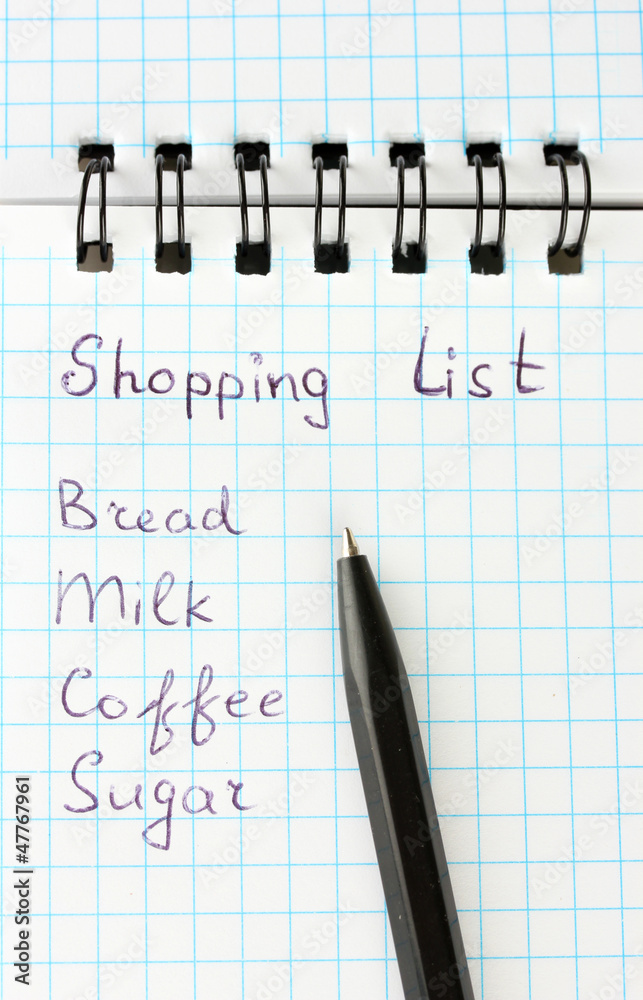 Shopping List
Bread
Milk
Coffee
Sugar
Adobe Stock | #47767961